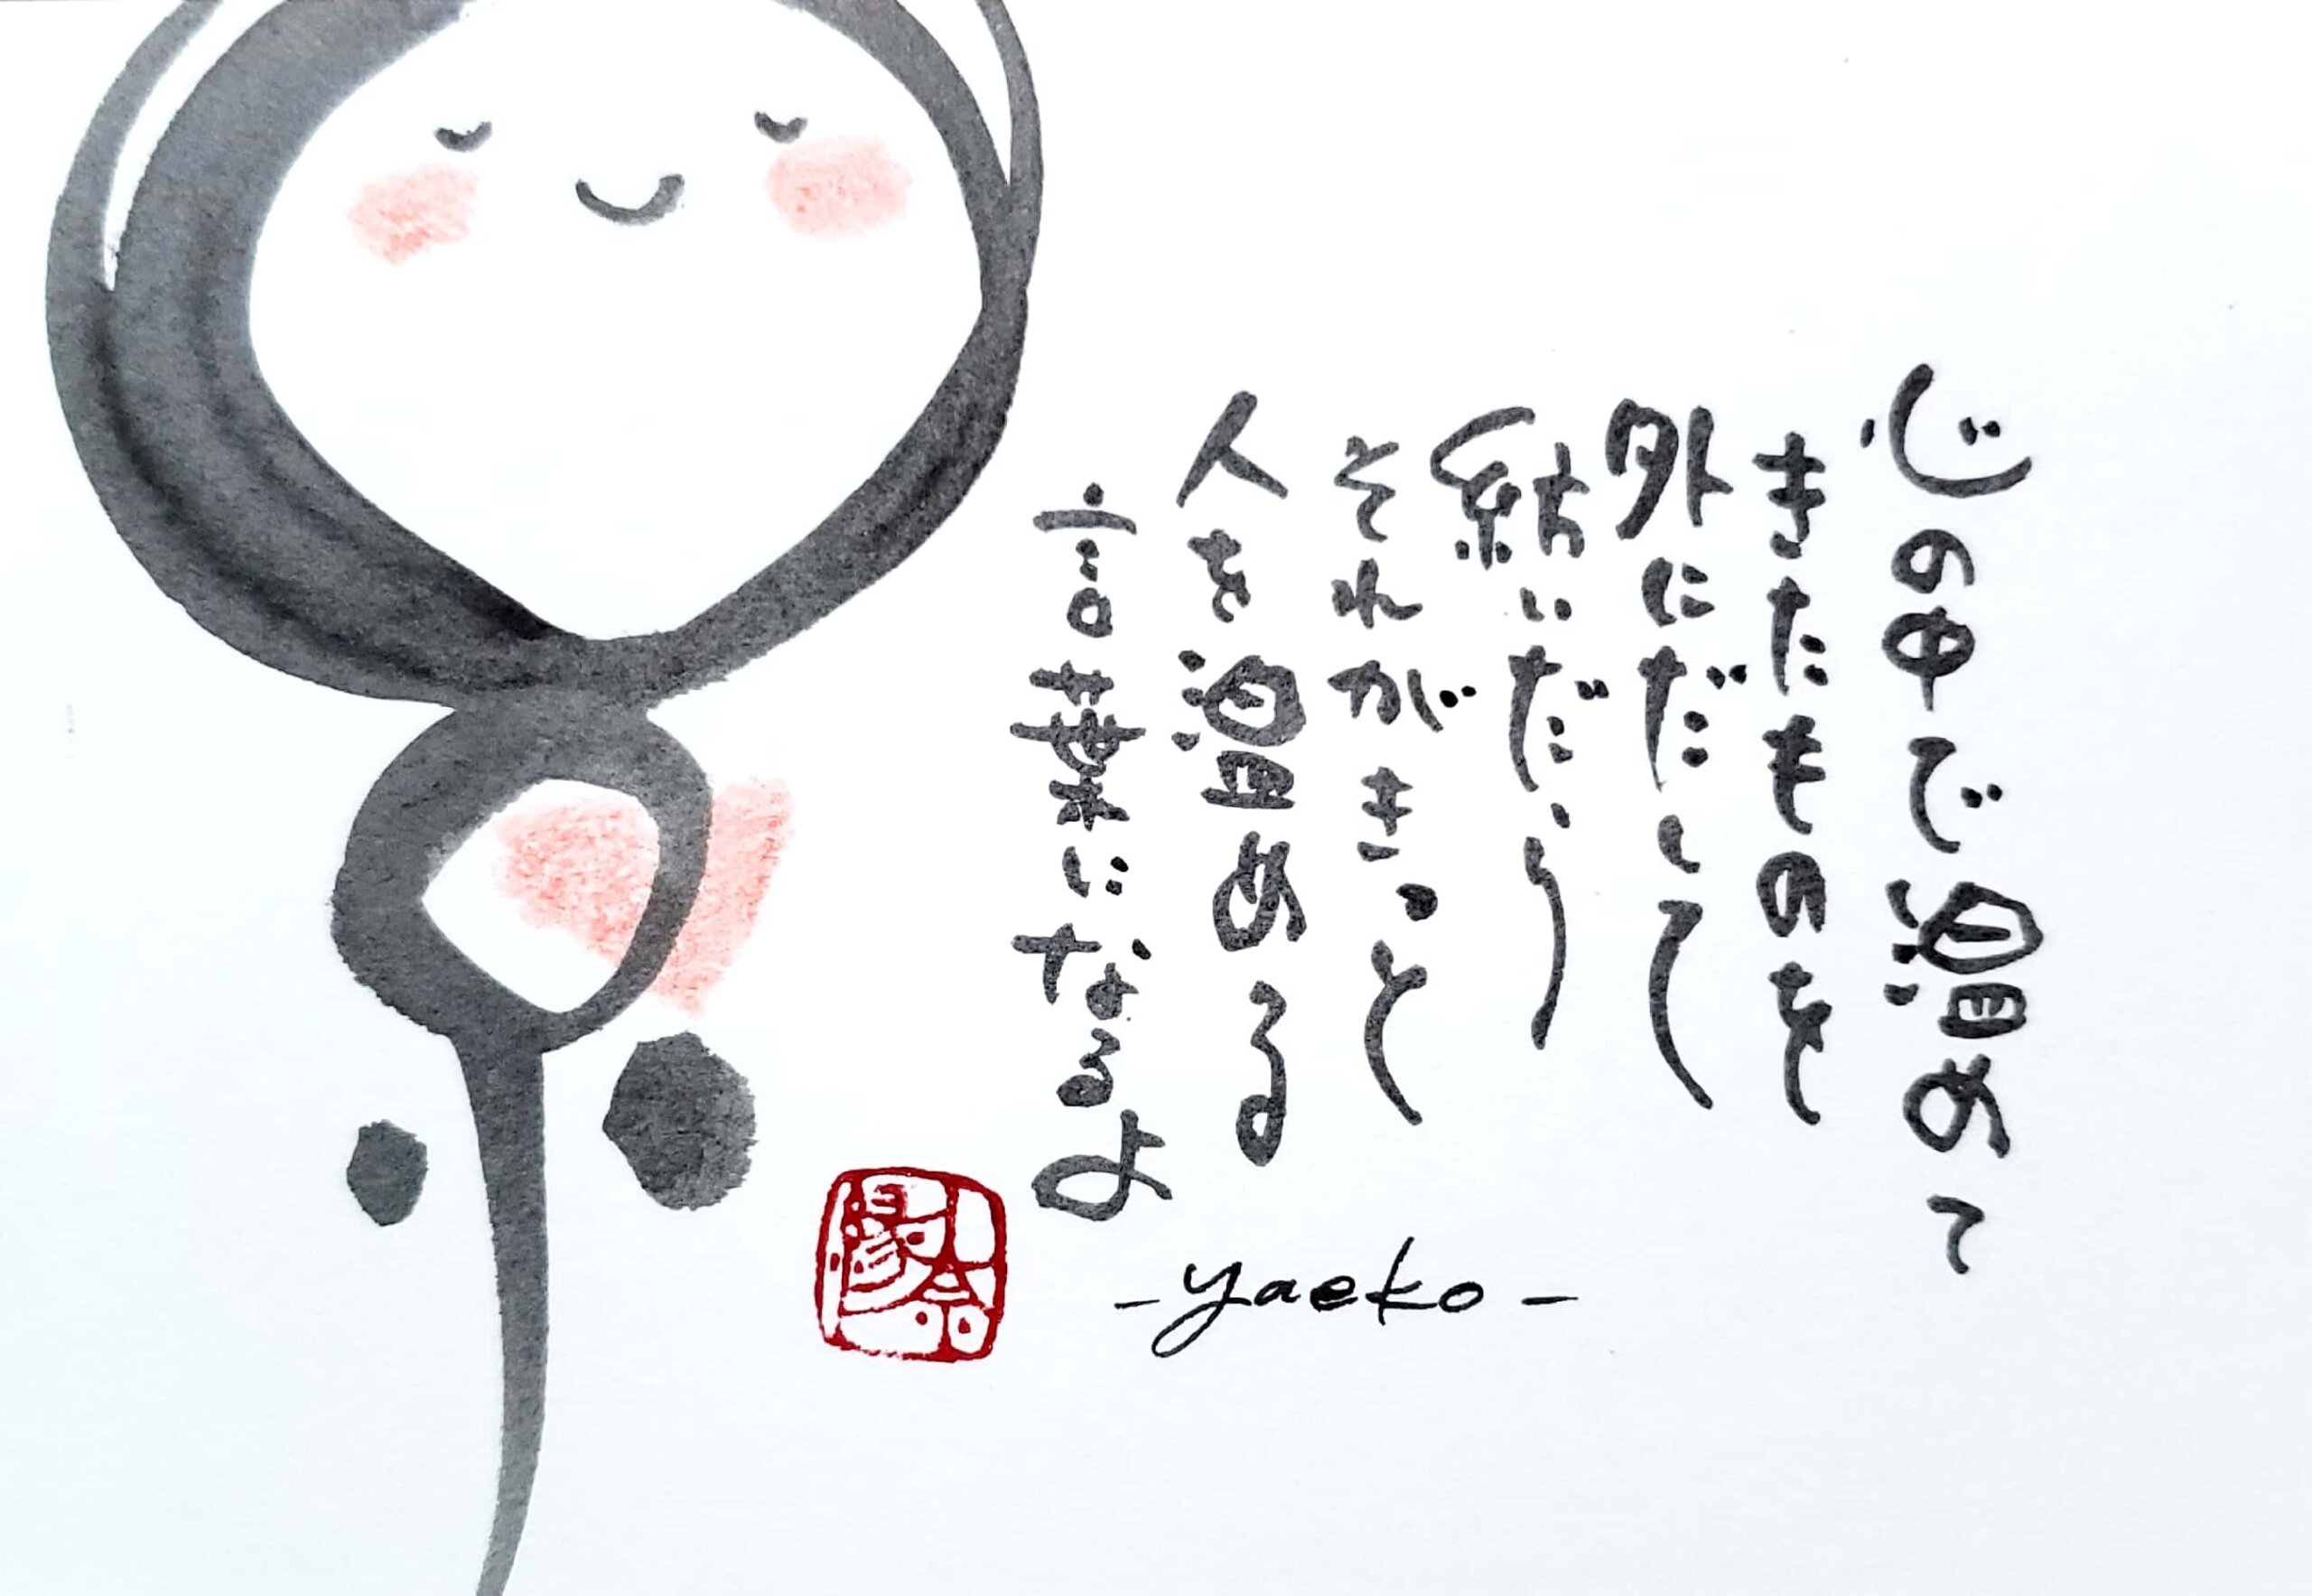 心の中で温めて
きたものを
外にだして
紡いだら
それがきっと
人を温める
言葉になるよ
-yaeko-